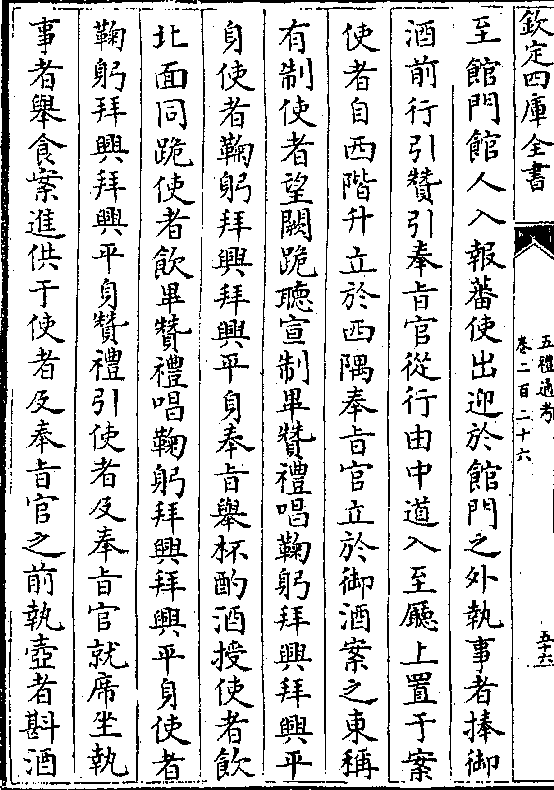 欽定四庫全書
五禮通考
卷二百二十六
五十六
至館門館人入報蕃使出迎於館門之外執事者捧御
酒前行引贊引奉旨官從行由中道入至廳上置于案
使者自西階升立於西隅奉旨官立於御酒案之東稱
有制使者望闕跪聽宣制畢贊禮唱鞠躬拜興拜興平
身使者鞠躬拜興拜興平身奉旨舉杯酌酒授使者飲
北面同跪使者飲畢贊禮唱鞠躬拜興拜興平身使者
鞠躬拜興拜興平身贊禮引使者及奉旨官就席坐執
事者舉食案進供于使者及奉旨官之前執壺者斟酒